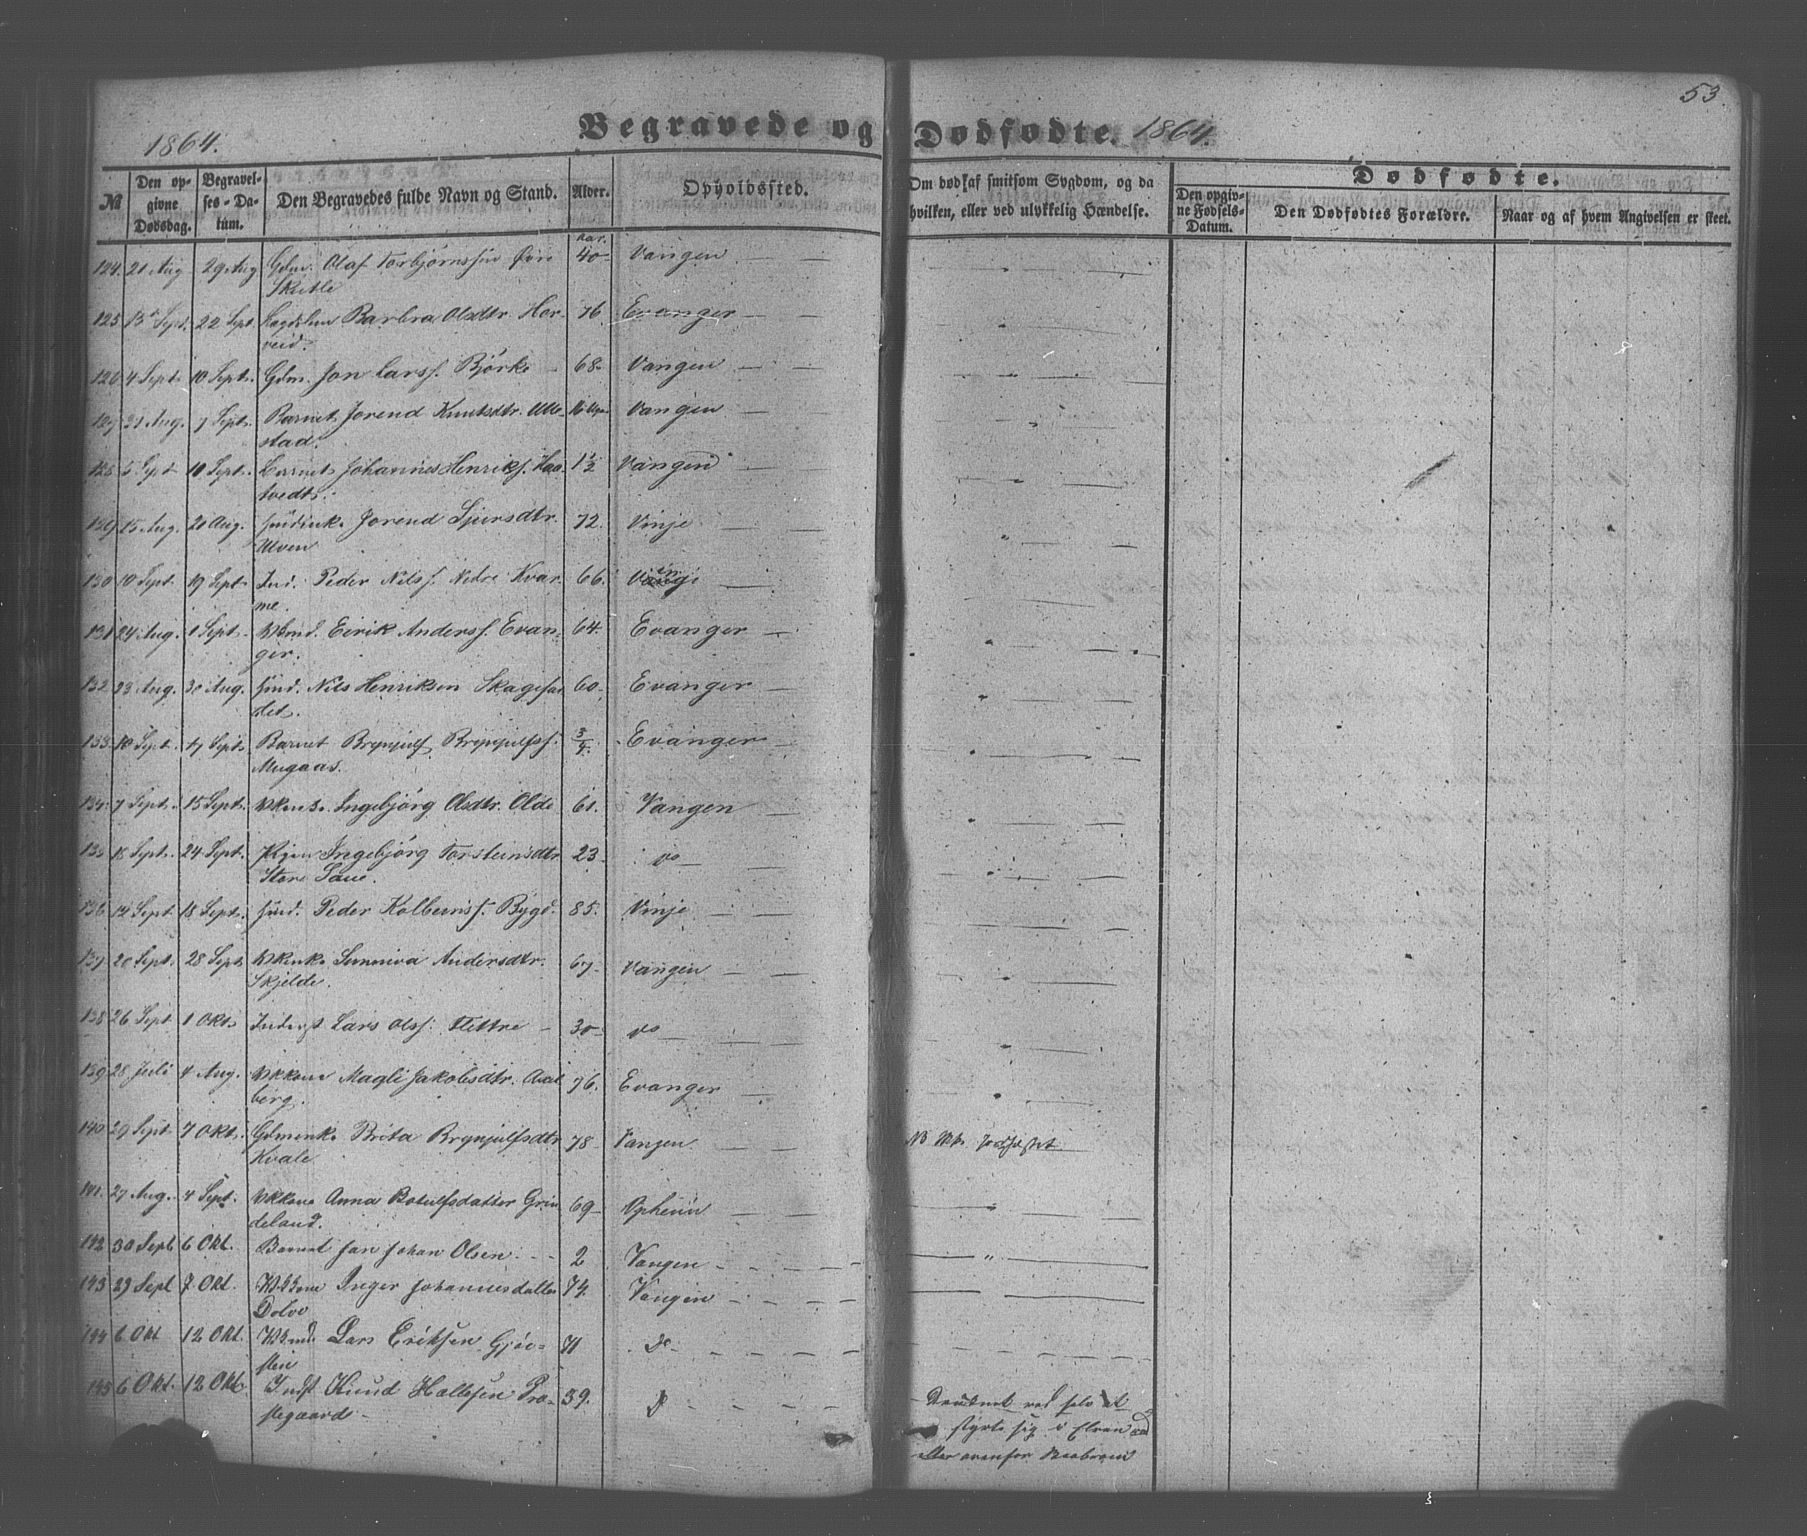 53
1864. Begravede og Dødfødte. 1864.
№ Den opgivne Dødsdag. Begravelses-Datum. Den Begravedes fulde Navn og Stand. Alder. Opholdssted. Om død af smitsom Sygdom, og da hvilken, eller ved ulykkelig Hændelse. Dødfødte.
Den opgivne Fødsels-Datum. Den Dødfødtes Forældre. Naar og af hvem Angivelsen er skeet.
124. 21 Aug 29 Aug Gdm. Olaf Torbjørnssen Øvre 40 aar. Vangen
Skutle
125 13 Sept. 22 Sept. Barbra Olsdtr. Hor- 76. Evanger
veid.
126 4 Sept. 10 Sept. Gdm. Jon Larss. Bjørke 68. Vangen
127 31 Aug. 7 Sept. Barnet Jorend Knutsdtr. Ulle- 16 Uger Vangen
stad.
128 5 Sept 10 Sept. Barnet Johannes Henriks. Haa- 1½ Vangen
tvedt.
129 15 Aug. 20 Aug. Jorend Sjursdtr. 72. Vinje
Ulven
130 10 Sept. 19 Sept. Ind. Peder Nilss. Nedre Kvar- 66. Vinje
me.
131 24 Aug. 1 Sept. Eirik Anderss. Evan- 64. Evanger
ger.
132 23 Aug. 30 Aug. Nils Henriksen Skagesæ- 60. Evanger
det.
133 10 Sept. 17 Sept. Barnet Brynjulf Brynjulfss. 3/4. Evanger
Mugaas.
134 7 Sept. 15 Sept. Ingebjörg Olsdtr. Olde 61. Vangen
135 18 Sept. 24 Sept. Pigen Ingebjörg Torsteinsdtr. 23. do
Store Saue.
136 12 Sept 18 Sept. Peder Kolbeinss. Bygd. 85. Vinje
137 20 Sept. 28 Sept Sunniva Andersdtr. 67. Vangen
Skjelde.
138 26 Sept 1 Okt. Inderst Lars Olss. Flettre 30 do
139 28 Juli 4 Aug. Kkone Magli Jakobsdtr. 76. Evanger
berg.
140 29 Sept 7 Okt. Gdmenke Brita Brynjulfsdtr. 78 Vangen
Kvale
141. 27 Aug. 4 Sept. Kkone Anna Botulfsdatter Grin- 69 Opheim
deland.
142 30 Sept 6 Okt. Barnet Jan Johan Olsen 2 Vangen
143 29 Sept 7 Okt. Inger Johannesdatter 74. Vangen
Dolve
144 6 Okt 12 Okt. Lars Eriksen Gjer- 71 do
stein
145 6 Okt. 12 Okt. Indst Knud Hallesen Pre- 39. do Druknet ved selv at
stegaard styrte sig i Elven